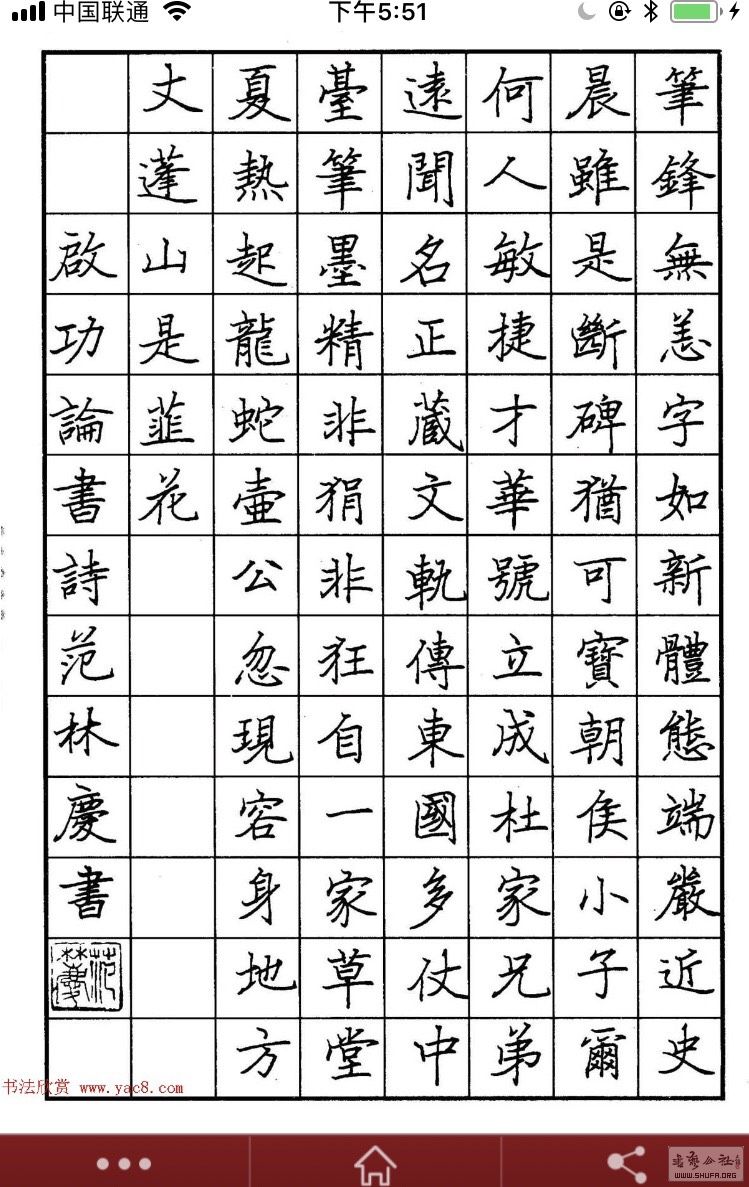 中国联通 下午5:51
筆鋒無恙字如新體態端嚴近史
晨雖是斷碑猶可寶朝侯小子爾
何人敏捷才華號立成杜家兄弟
遠聞名正藏文軌傳東國多仗中
臺筆墨精非狷非狂自一家草堂
夏熱起龍蛇壷公忽現容身地方
丈蓬山是韮花
啟功論書詩范林慶書
书法欣赏 www.yac8.com
WWW.SHUFA.ORG